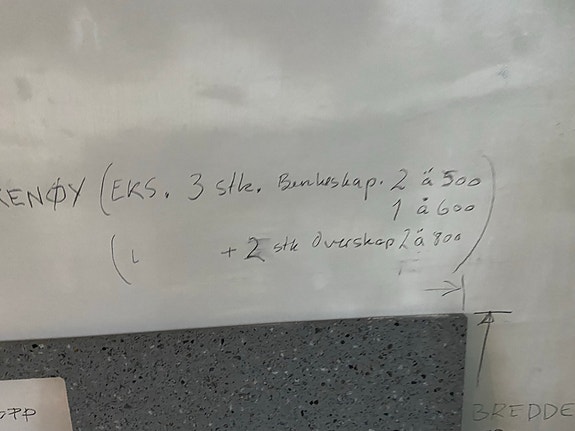 KENØY (EKS. 3 stk. Benkeskap. 2 á 500
1 å 600
+ 2 stk Overskap 2 á 800)
BREDDE